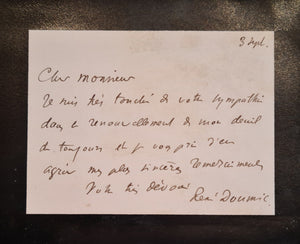 3 Sept.
Cher monsieur
Je suis très touché de votre sympathie
dans le renouvellement de mon deuil
de toujours et je vous prie d'en
agréer mes plus sincères remerciements
Votre très dévoué
René Doumic.